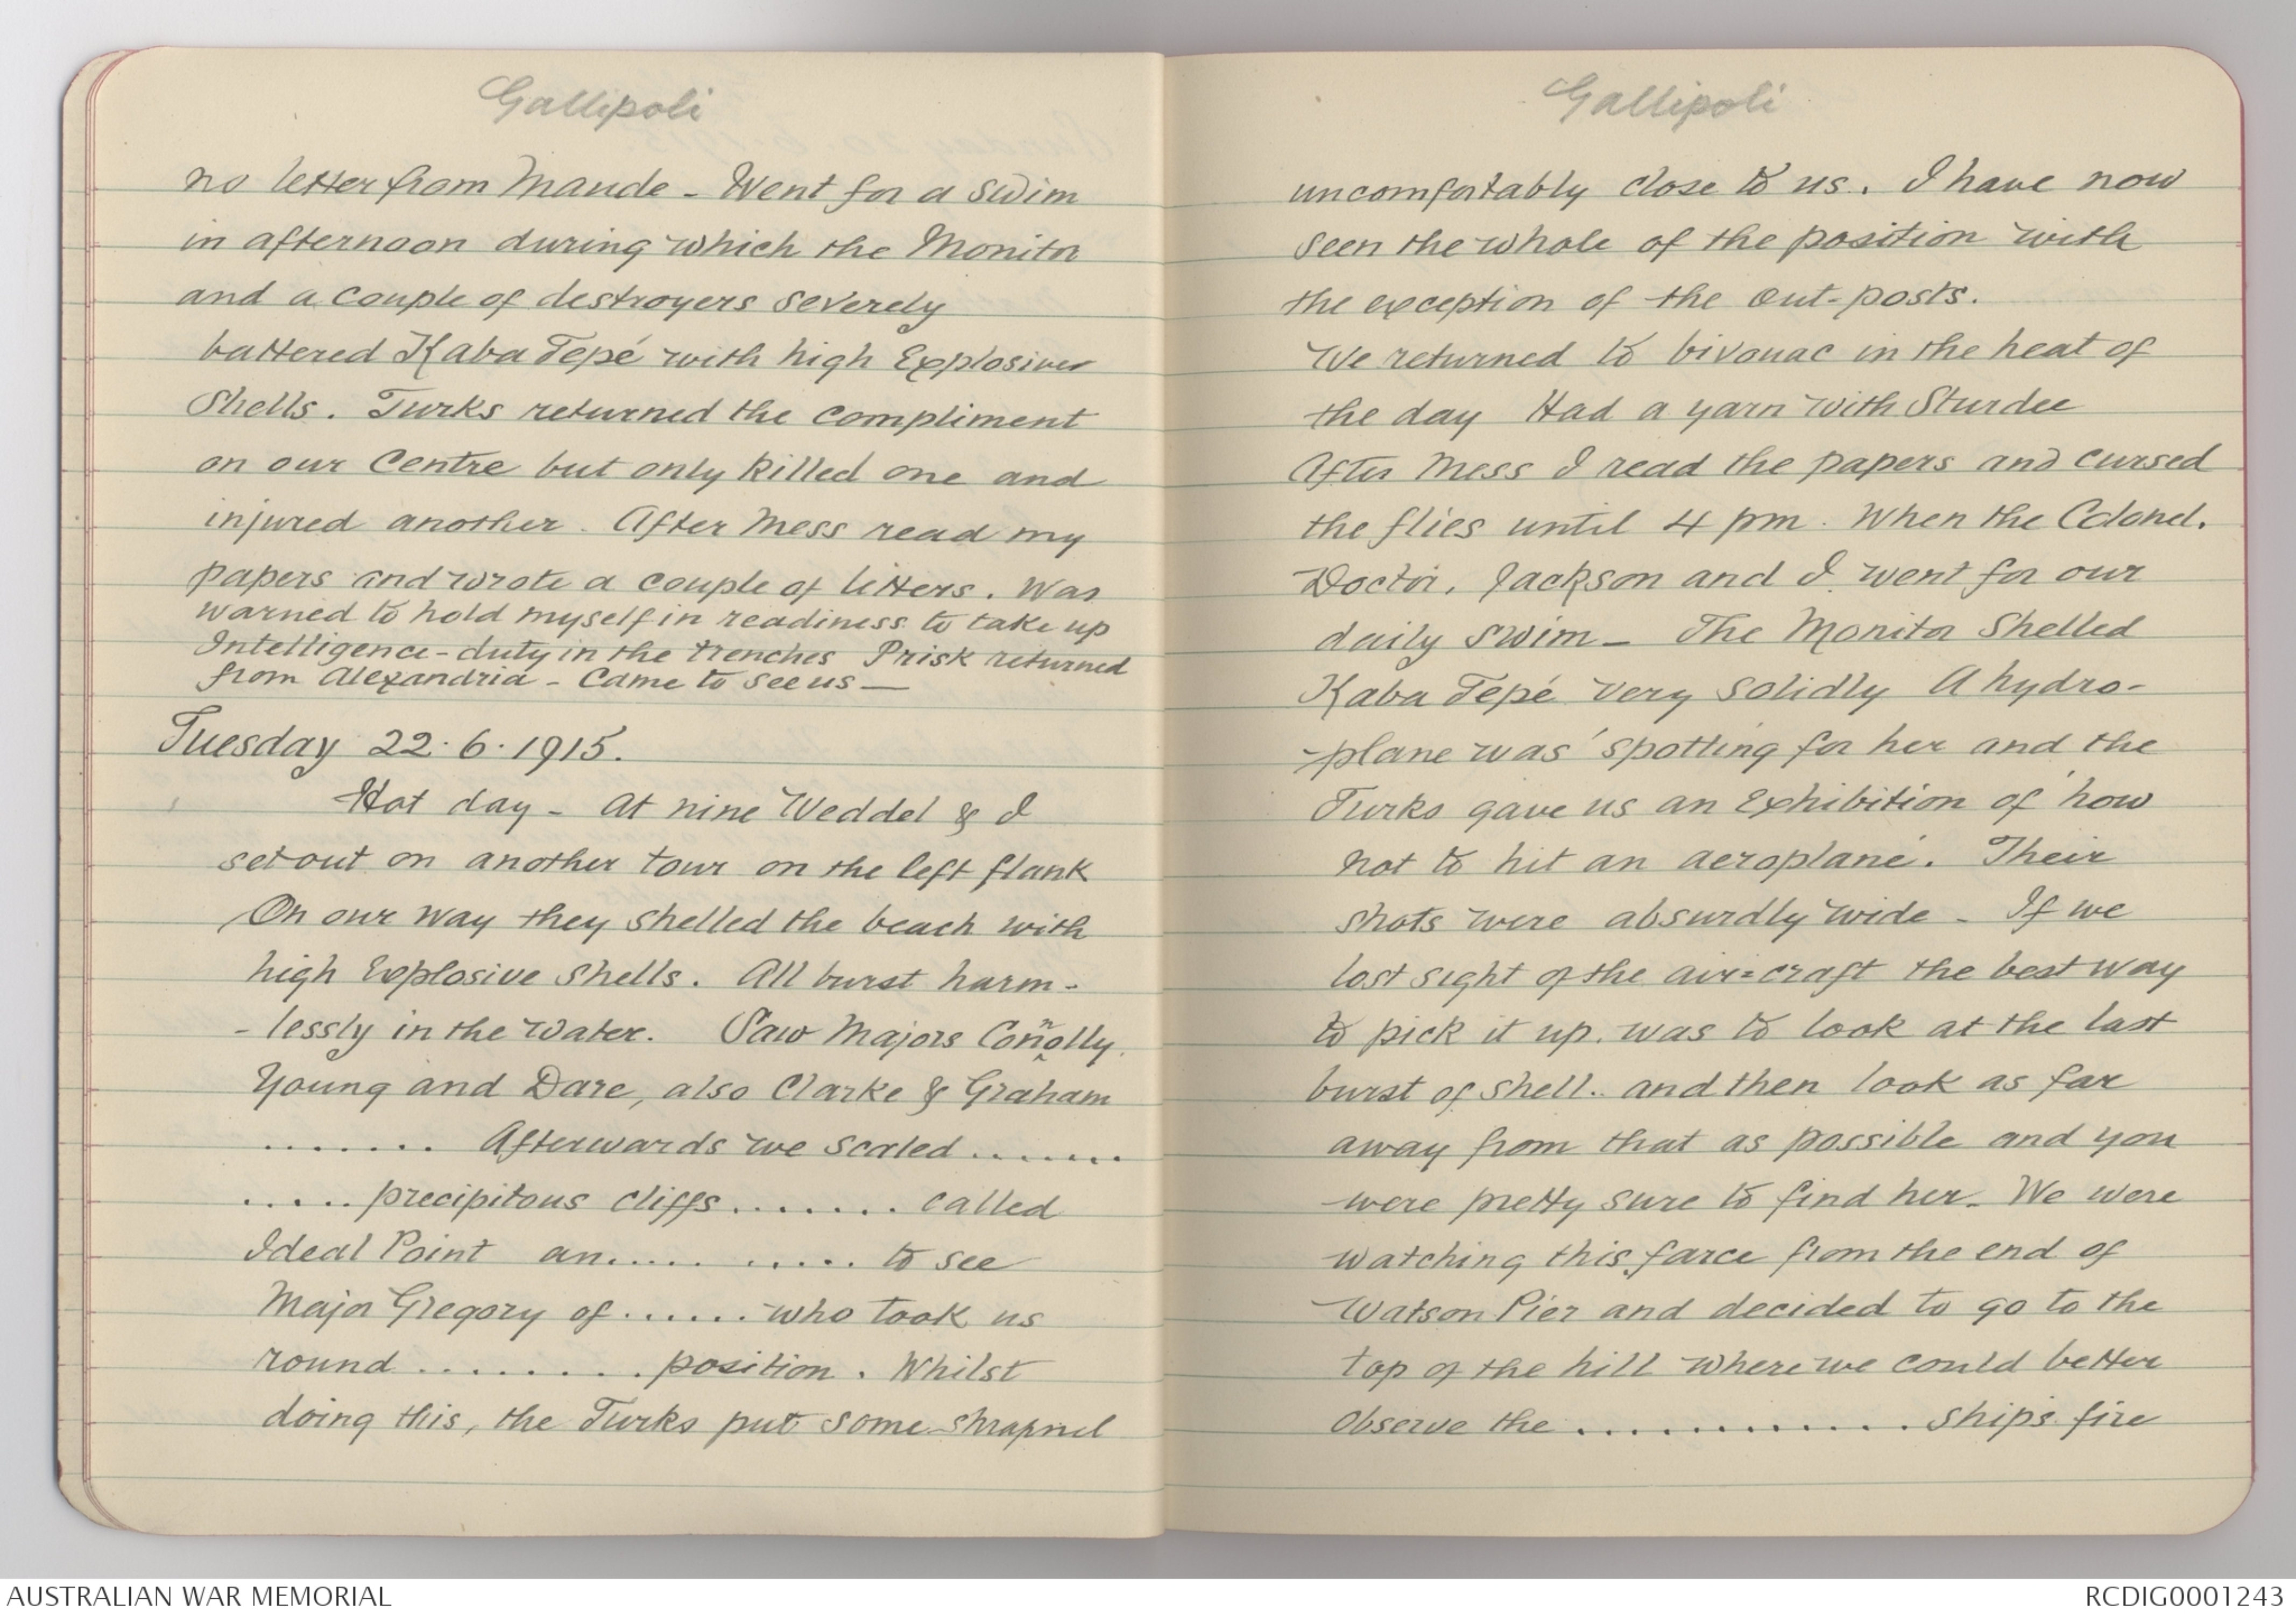 Gallipoli
no letter from Maude - Went for a swim
in afternoon during which the Monitor
and a couple of destroyers severely
battered Kaba Tepé with high Explosives
Shells. Turks returned the compliment
on our Centre but only killed one and
injured another. After Mess read my
papers and wrote a couple of letters. Was
warned to hold myself in readiness to take up
Intelligence-duty in the trenches Prisk returned
from Alexandria - Came to see us —
Tuesday 22.6.1915.
Hot day - At nine Weddel & I
set out on another tour on the left flank
On our way they shelled the beach with
high Explosive shells. All burst harm-
-lessly in the water. Saw Majors Connolly.
Young and Dare, also Clarke & Graham
........ Afterwards we scaled .......
..... precipitous cliffs ........ called
Ideal Point an..... ..... to see
Major Gregory of ...... who took us
round ......... position. Whilst
doing this, the Turks put some shrapnel
Gallipoli
uncomfortably close to us. I have now
seen the whole of the position with
the exception of the out-posts.
We returned to bivouac in the heat of
the day Had a yarn with Sturdee
After Mess I read the papers and cursed
the flies until 4 pm. When the Colonel.
Doctor, Jackson and I went for our
daily swim - The Monitor Shelled
Kaba Tepé very solidly A hydro-
-plane was 'spotting for her and the
Turks gave us an Exhibition of 'how
not to hit an aeroplane'. Their
shots were absurdly wide - If we
lost sight of the air=craft the best way
to pick it up. was to look at the last
burst of shell.. and then look as far
away from that as possible and you
were pretty sure to find her. We were
watching this farce from the end of
Watson Pier and decided to go to the
top of the hill where we could better
observe the ............. ships fire
AUSTRALIAN WAR MEMORIAL
RCDIG0001243